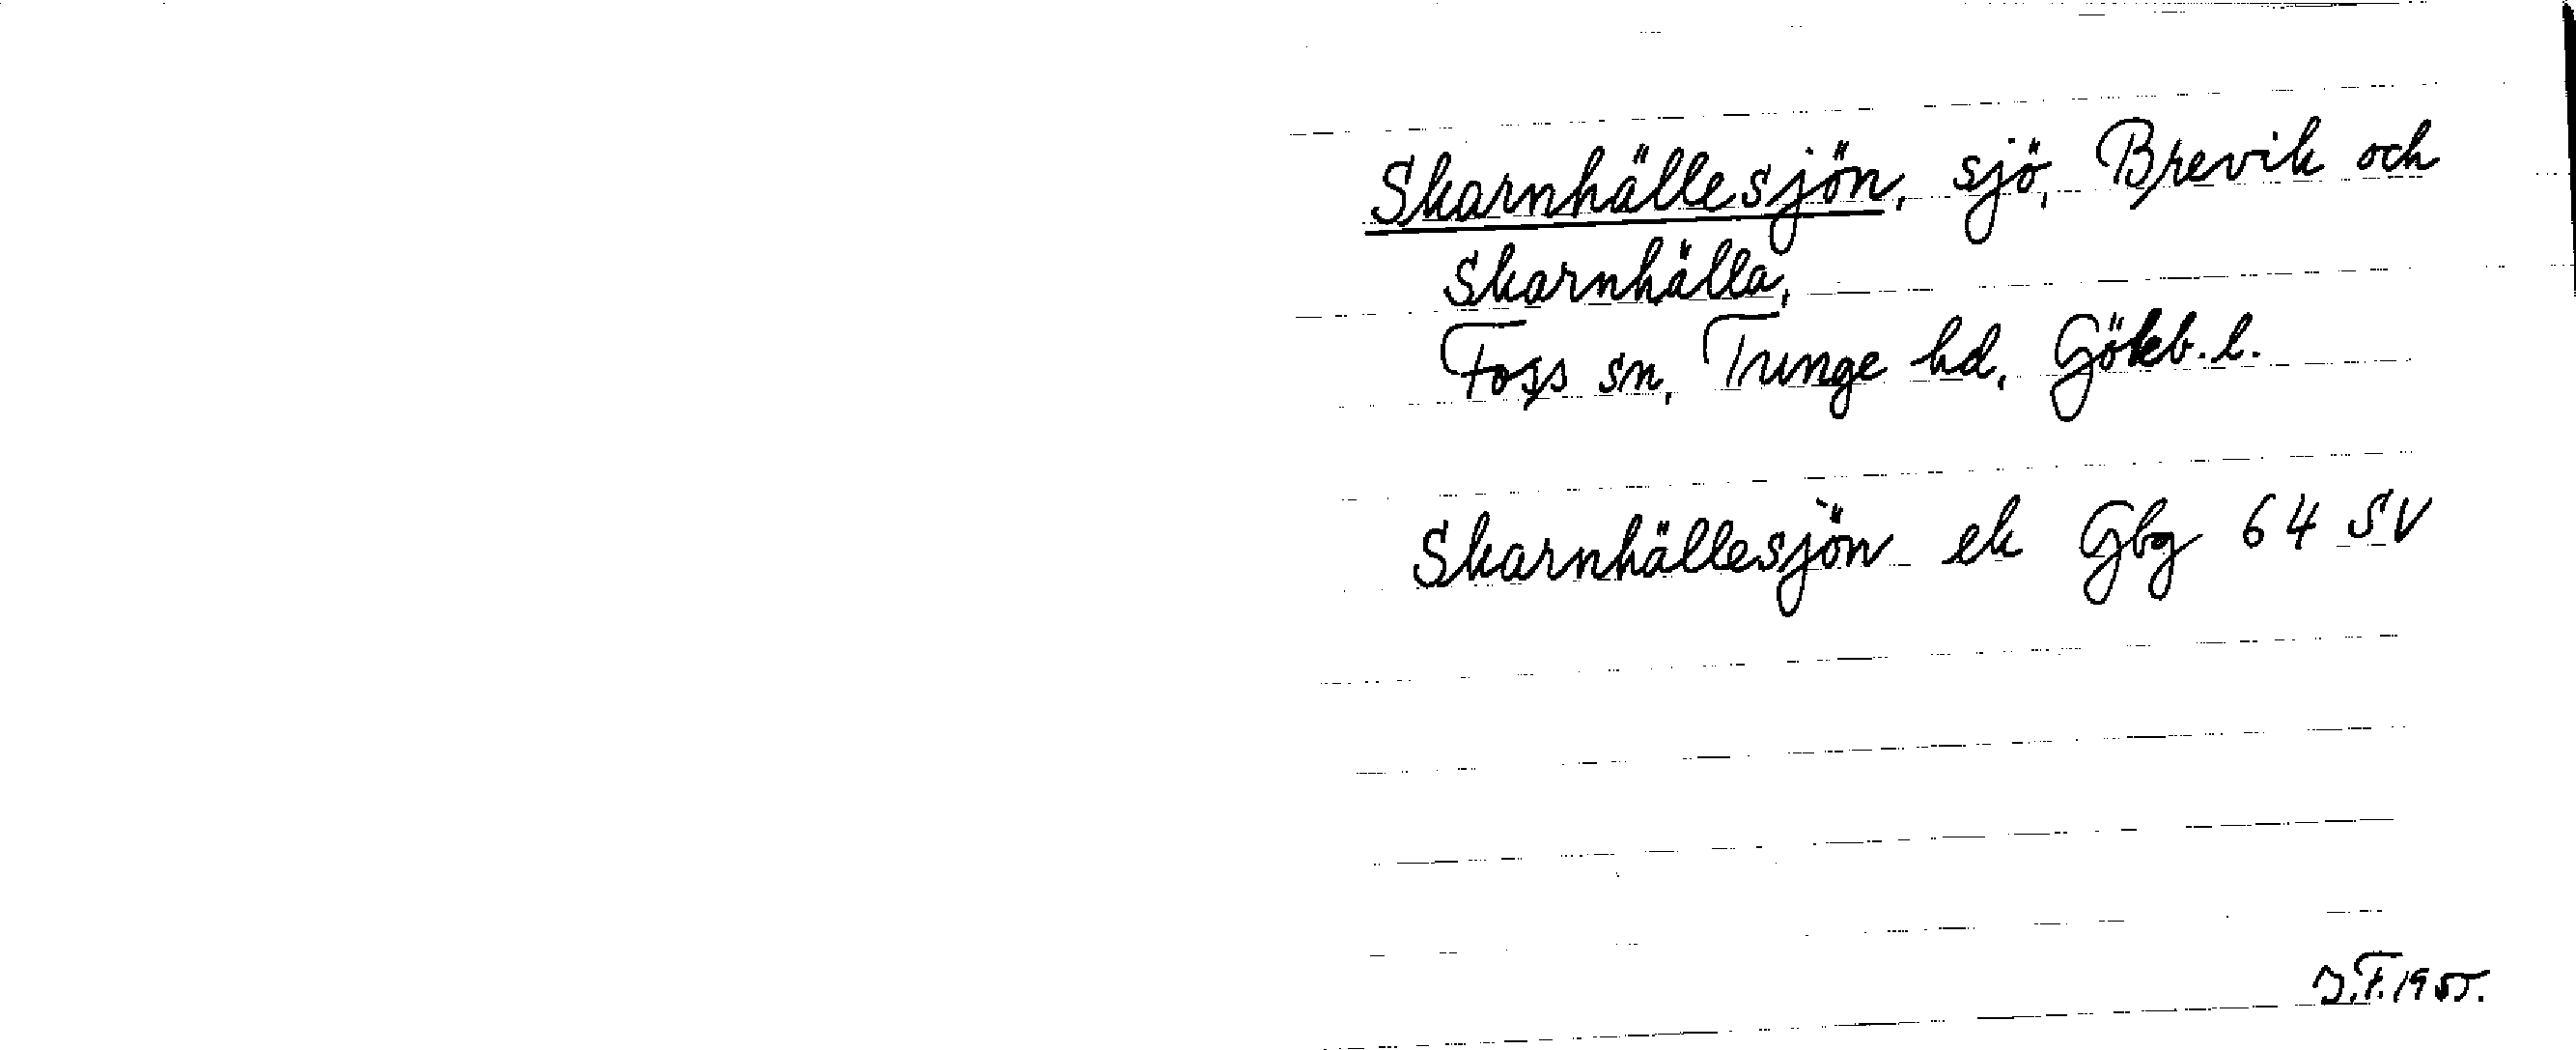 Skarnhällesjön, sjö, Brevik och
Skarnhälla,
Foss sn, Tunge hd, Gökb. l.
Skarnhällesjön ek Gbg 64 SV
J.F. 1955.